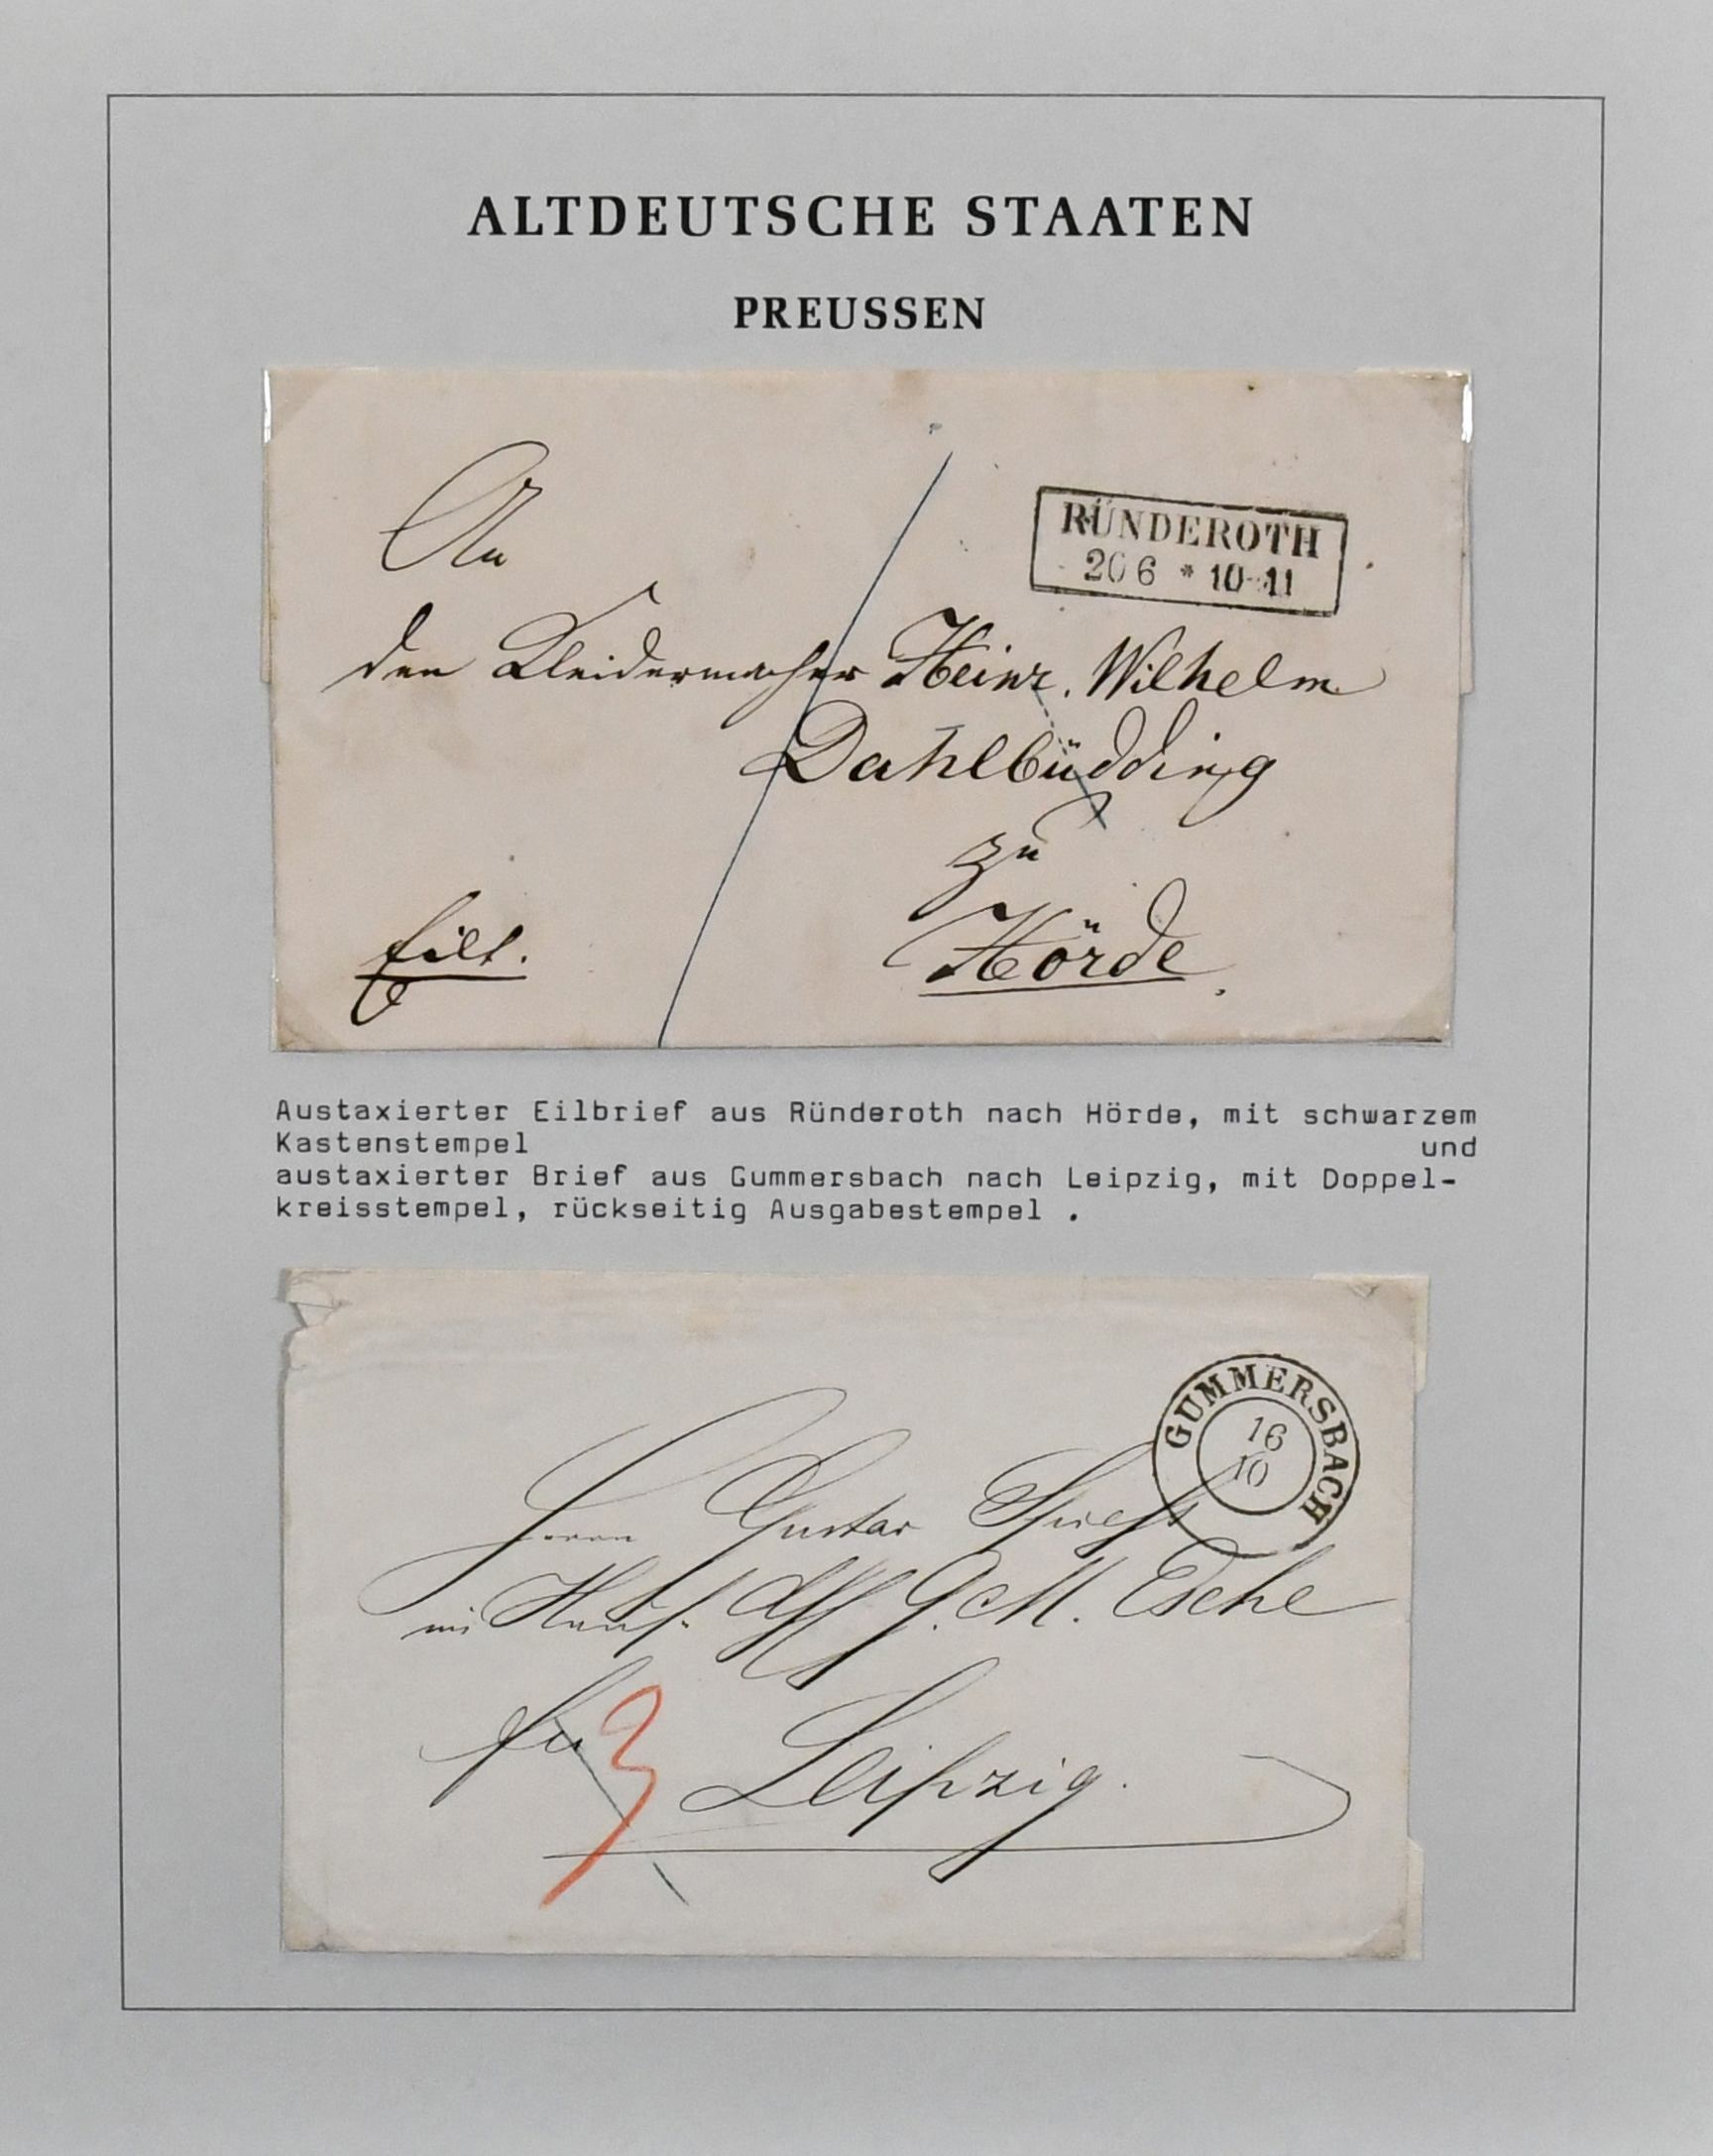 ALTDEUTSCHE STAATEN
PREUSSEN
RÜNDEROTH
20 6 * 10-11
An
den Kleidermacher Heinr. Wilhelm
Dahlbüdding
zu
Hörde
Eilt.
Austaxierter Eilbrief aus Ründeroth nach Hörde, mit schwarzem
Kastenstempel und
austaxierter Brief aus Gummersbach nach Leipzig, mit Doppel-
kreisstempel, rückseitig Ausgabestempel .
GUMMERSBACH
16
10
Herrn Gustav Spieß
im Hause M. Esche
3
Leipzig.